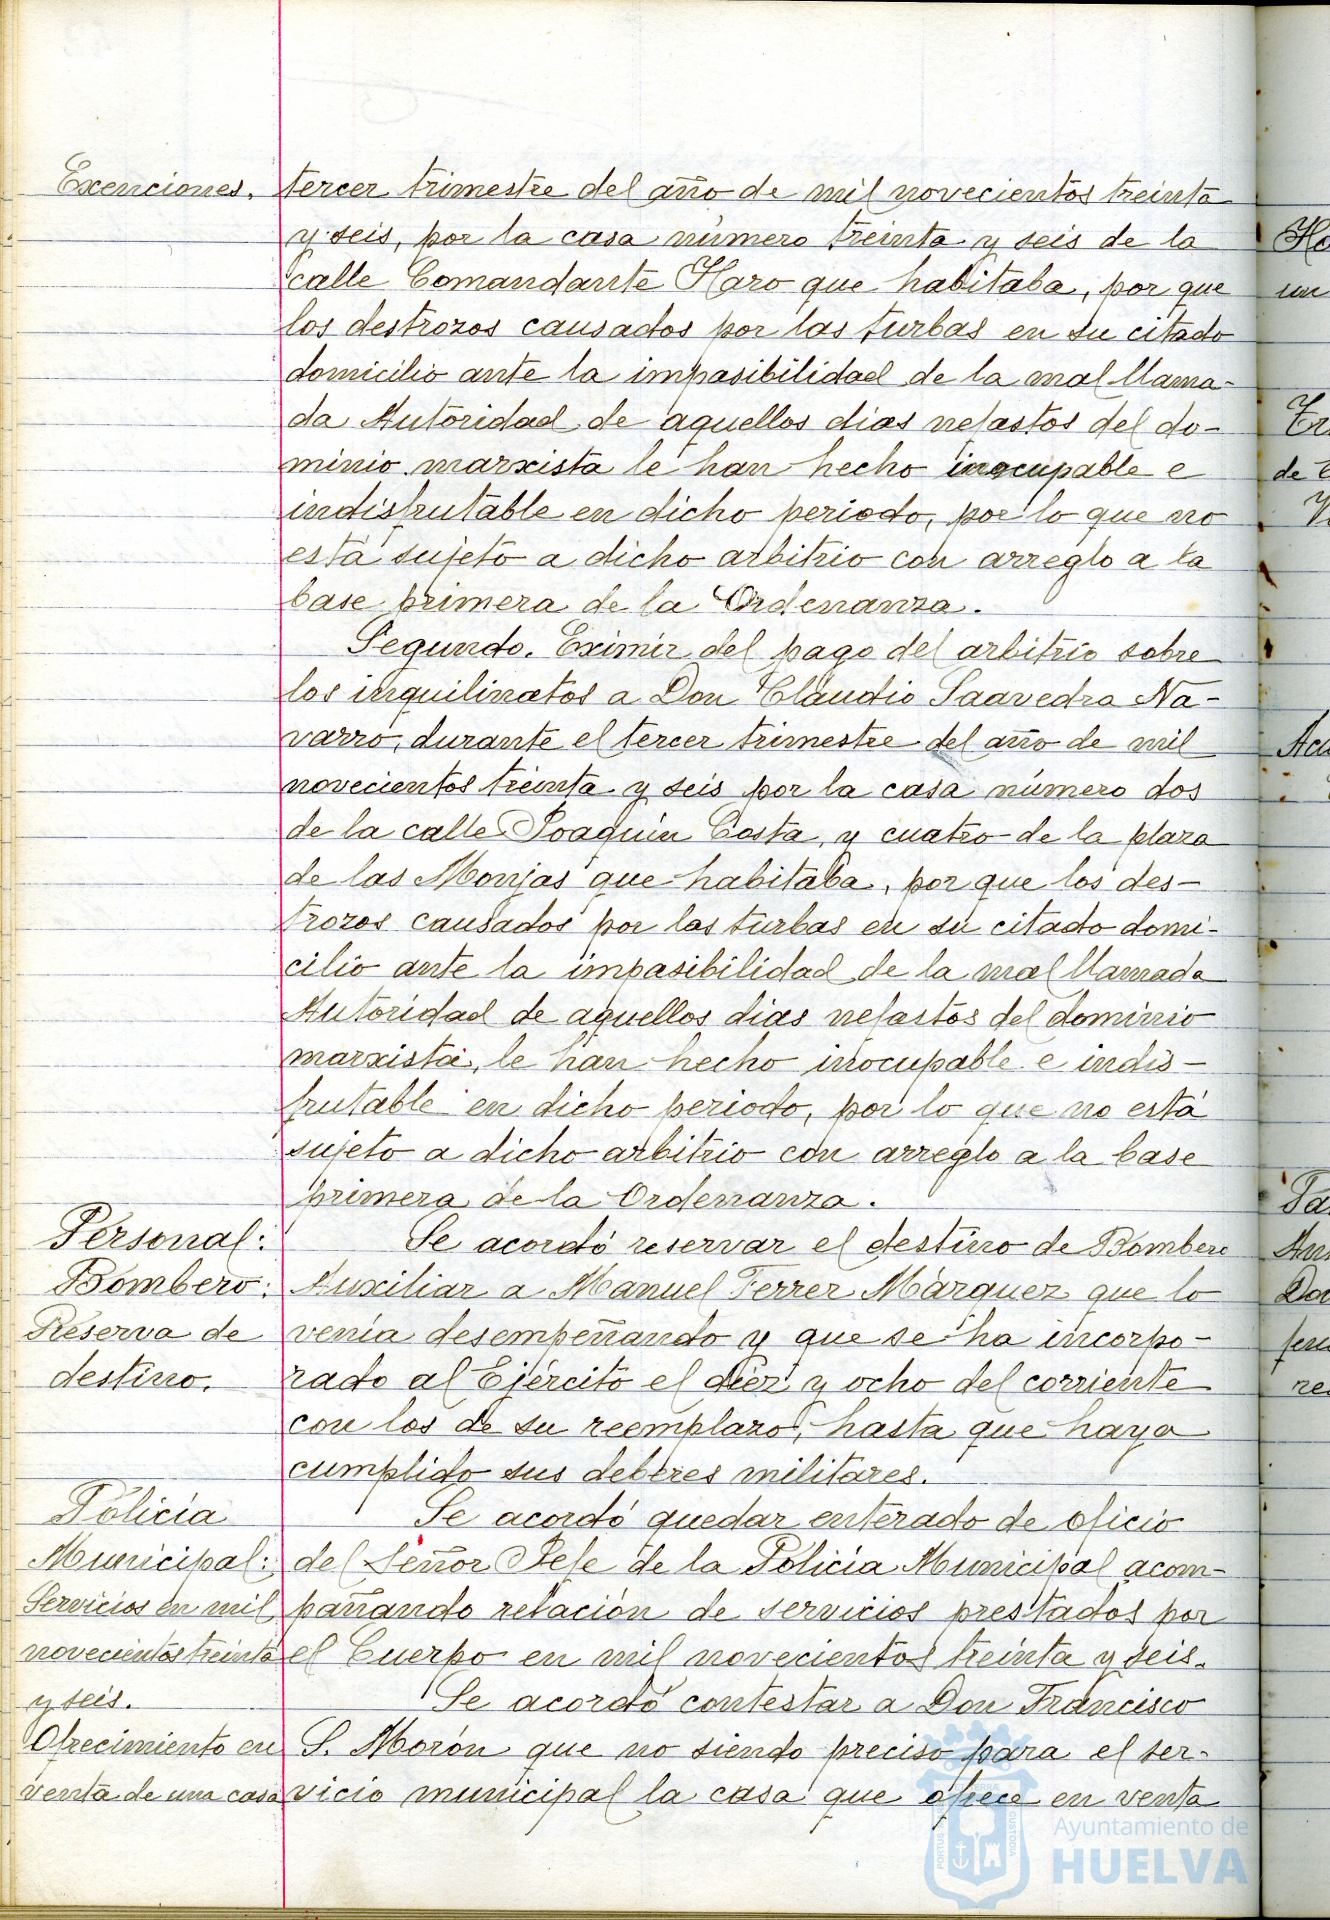 Exenciones. tercer trimestre del año de mil novecientos treinta
y seis, por la casa número treinta y seis de la
calle Comandante Haro que habitaba, por que
los destrozos causados por las turbas en su citado
domicilio ante la impasibilidad de la mal llama-
da Autoridad de aquellos dias nefastos del do-
minio marxista le han hecho inocupable e
indisfrutable en dicho periodo, por lo que no
está sujeto a dicho arbitrio con arreglo a la
base primera de la Ordenanza.
Segundo. Eximir del pago del arbitrio sobre
los inquilinatos a Don Claudio Saavedra Na-
varro, durante el tercer trimestre del año de mil
novecientos treinta y seis por la casa número dos
de la calle Joaquín Costa, y cuatro de la plaza
de las Monjas que habitaba, por que los des-
trozos causados por las turbas en su citado domi-
cilio ante la impasibilidad de la mal llamada
Autoridad de aquellos dias nefastos del dominio
marxista, le han hecho inocupable e indis-
frutable en dicho periodo, por lo que no está
sujeto a dicho arbitrio con arreglo a la base
primera de la Ordenanza.
Personal: Se acordó reservar el destino de Bombero
Bombero: Auxiliar a Manuel Ferrer Márquez que lo
Reserva de venía desempeñando y que se ha incorpo-
destino. rado al Ejército el diez y ocho del corriente
con los de su reemplazo, hasta que haya
cumplido sus deberes militares.
Policía Se acordó quedar enterado de oficio
Municipal: del Señor Jefe de la Policía Municipal acom-
Servicios en mil pañando relación de servicios prestados por
novecientos treinta el Cuerpo en mil novecientos treinta y seis.
y seis. Se acordó contestar a Don Francisco
Ofrecimiento en S. Morón que no siendo preciso para el ser-
venta de una casa vicio municipal la casa que ofrece en venta
Ayuntamiento de
HUELVA